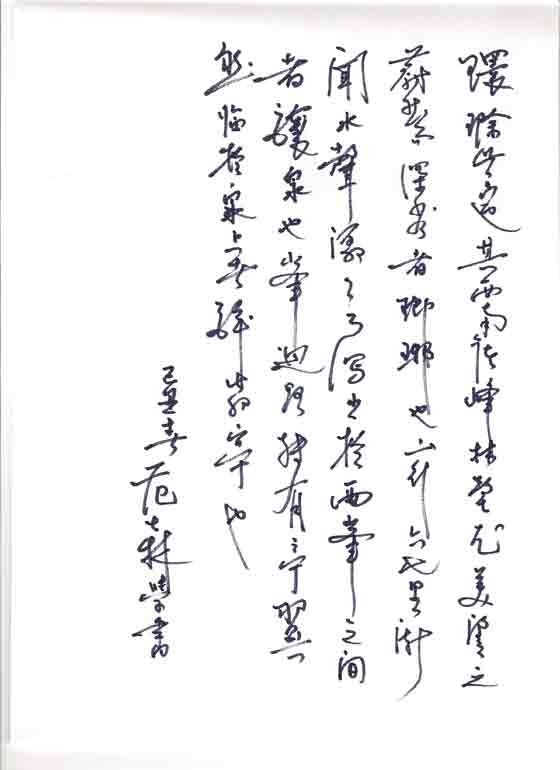 環滁皆山也其西南諸峰林壑尤美望之
蔚然深秀者瑯琊也山行六七里漸
聞水聲潺々而瀉出於兩峯之間
者讓泉也峯迴路轉有亭翼
然臨於泉上者醉翁亭也
己丑春范林學書